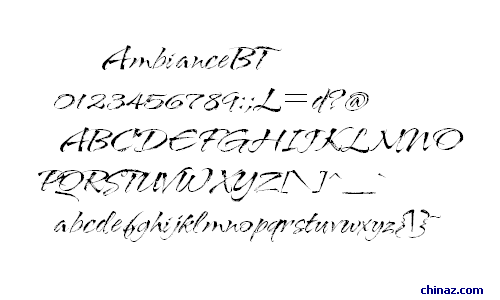 AmbianceBT
0123456789:;L=d?@
ABCDEFGHIJKLMNO
PQRSTUVWXYZ[\]^__`
abcdefghijklmnopqrstuvwxyz{|}~
chinaz.com